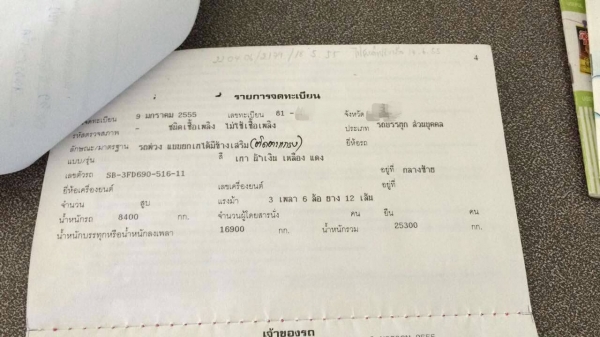 4
รายการจดทะเบียน
จดทะเบียน 9 มกราคม 2555 เลขทะเบียน 81- จังหวัด
รหัสตรวจสภาพ - ชนิดเชื้อเพลิง ไม่ใช้เชื้อเพลิง ประเภท รถบรรทุก ส่วนบุคคล
ลักษณะ/มาตรฐาน รถพ่วง แบบยกเทได้มีข้างเสริม ยี่ห้อรถ
แบบ/รุ่น สี เทา ฟ้า เงิน เหลือง แดง
เลขตัวรถ SB-3FD690-516-11 อยู่ที่ กลางซ้าย
ยี่ห้อเครื่องยนต์ เลขเครื่องยนต์ อยู่ที่
จำนวน สูบ แรงม้า 3 เพลา 6 ล้อ ยาง 12 เส้น
น้ำหนักรถ 8400 กก. จำนวนผู้โดยสารนั่ง คน ยืน คน
น้ำหนักบรรทุกหรือน้ำหนักลงเพลา 16900 กก. น้ำหนักรวม 25300 กก.
เจ้าของรถ